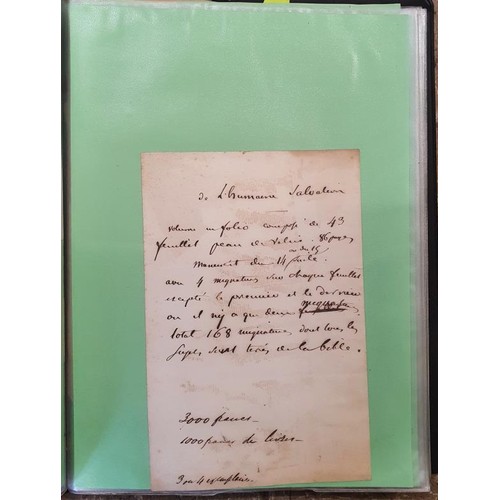 de L'humaine Salvation
volume in folio composé de 43
feuillet peau de velin. 86 pages
ou du 15
manuscrit du 14 siècle.
avec 4 mignatures sur chaque feuillet
excepté le première et le dernière
ou il n'y a que deux mignatures
total 168 mignatures, dont tous les
sujets sont tirés de la bible.
3000 francs
1000 de
3 ou 4 exemplaires.